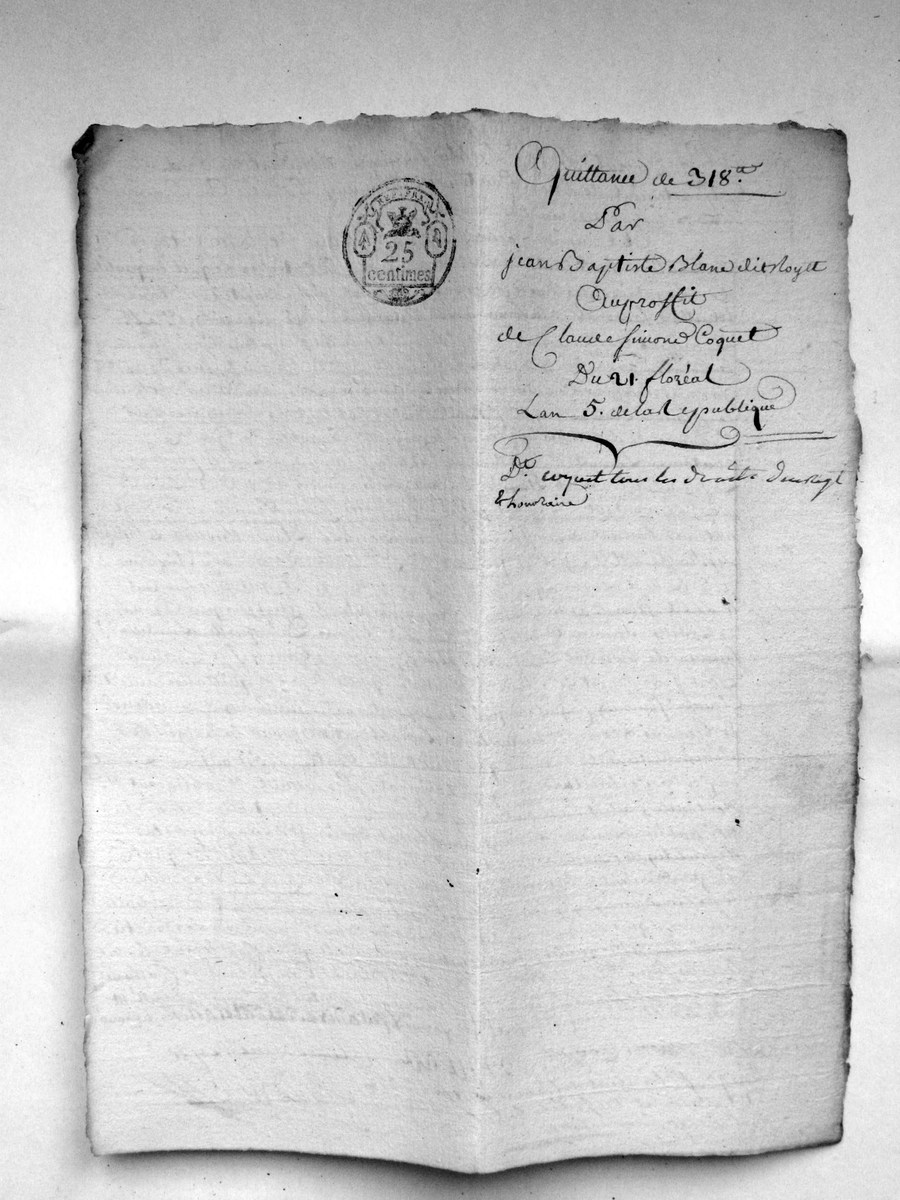 REP. FRA.
25
centimes
Quittance de 318.tt
Par
jean Baptiste Blanc dit
Auproffit
de Claude Simond Coquet
Du 21. floréal
Lan 5. de la Republique
Dt. coquet tous les droits
& honoraire